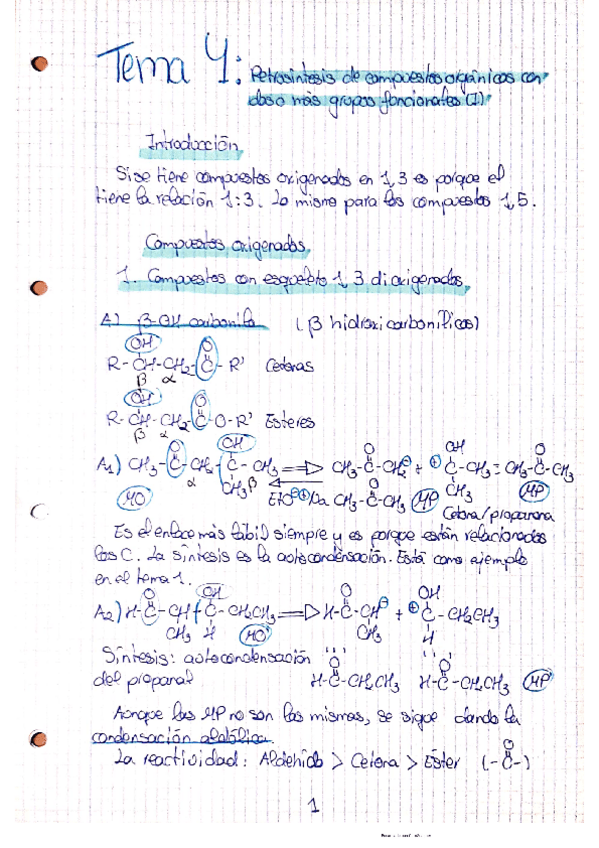 Tema 4: Retrosíntesis de compuestos orgánicos con
dos o más grupos funcionales (I)
Introducción
Si se tiene compuestos oxigenados en 1,3 es porque el
tiene la relación 1:3. Lo mismo para los compuestos 1,5.
Compuestos oxigenados
1. Compuestos con esqueleto 1,3 dioxigenados
A) β-OH carbonilo (β hidroxicarbonílicos)
OH O
R-CH-CH2-C-R' Cetonas
β α
OH O
R-CH-CH2-C-O-R' Ésteres
β α
O OH O OH O
A1) CH3-C-CH2-C-CH3 ⟹ CH3-C-CH2⊖ + ⊕C-CH3 = CH3-C-CH3
α CH3 β O CH3
MO EtO⊖⊕Na CH3-C-CH3 MP MP
Cetona/propanona
Es el enlace más lábil siempre y es porque están relacionados
los C. La síntesis es la autocondensación. Está como ejemplo
en el tema 1.
O OH O OH
A2) H-C-CH-C-CH2CH3 ⟹ H-C-CH⊖ + ⊕C-CH2CH3
CH3 H MO CH3 H
Síntesis: autocondensación O O
del propanal H-C-CH2CH3 H-C-CH2CH3 MP
Aunque las MP no son las mismas, se sigue dando la
condensación aldólica.
O
La reactividad: Aldehído > Cetona > Éster (-C-)
1